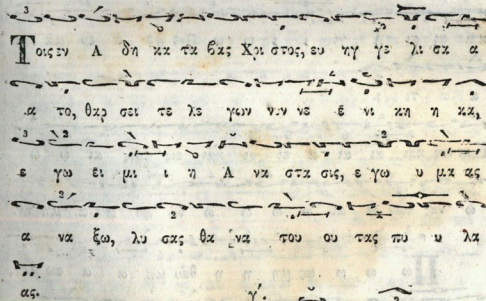 Τοις εν Α δη κα τα βας Χρι στος, ευ ηγ γε λι σα α
α το, θαρ σει τε λε γων νυν νε ε νι κη η κα,
ε γω ει μι ι η Α να στα σις, ε γω υ μα ας
α να ξω, λυ σας θα να του ου τας πυ υ λα
ας. γ'.